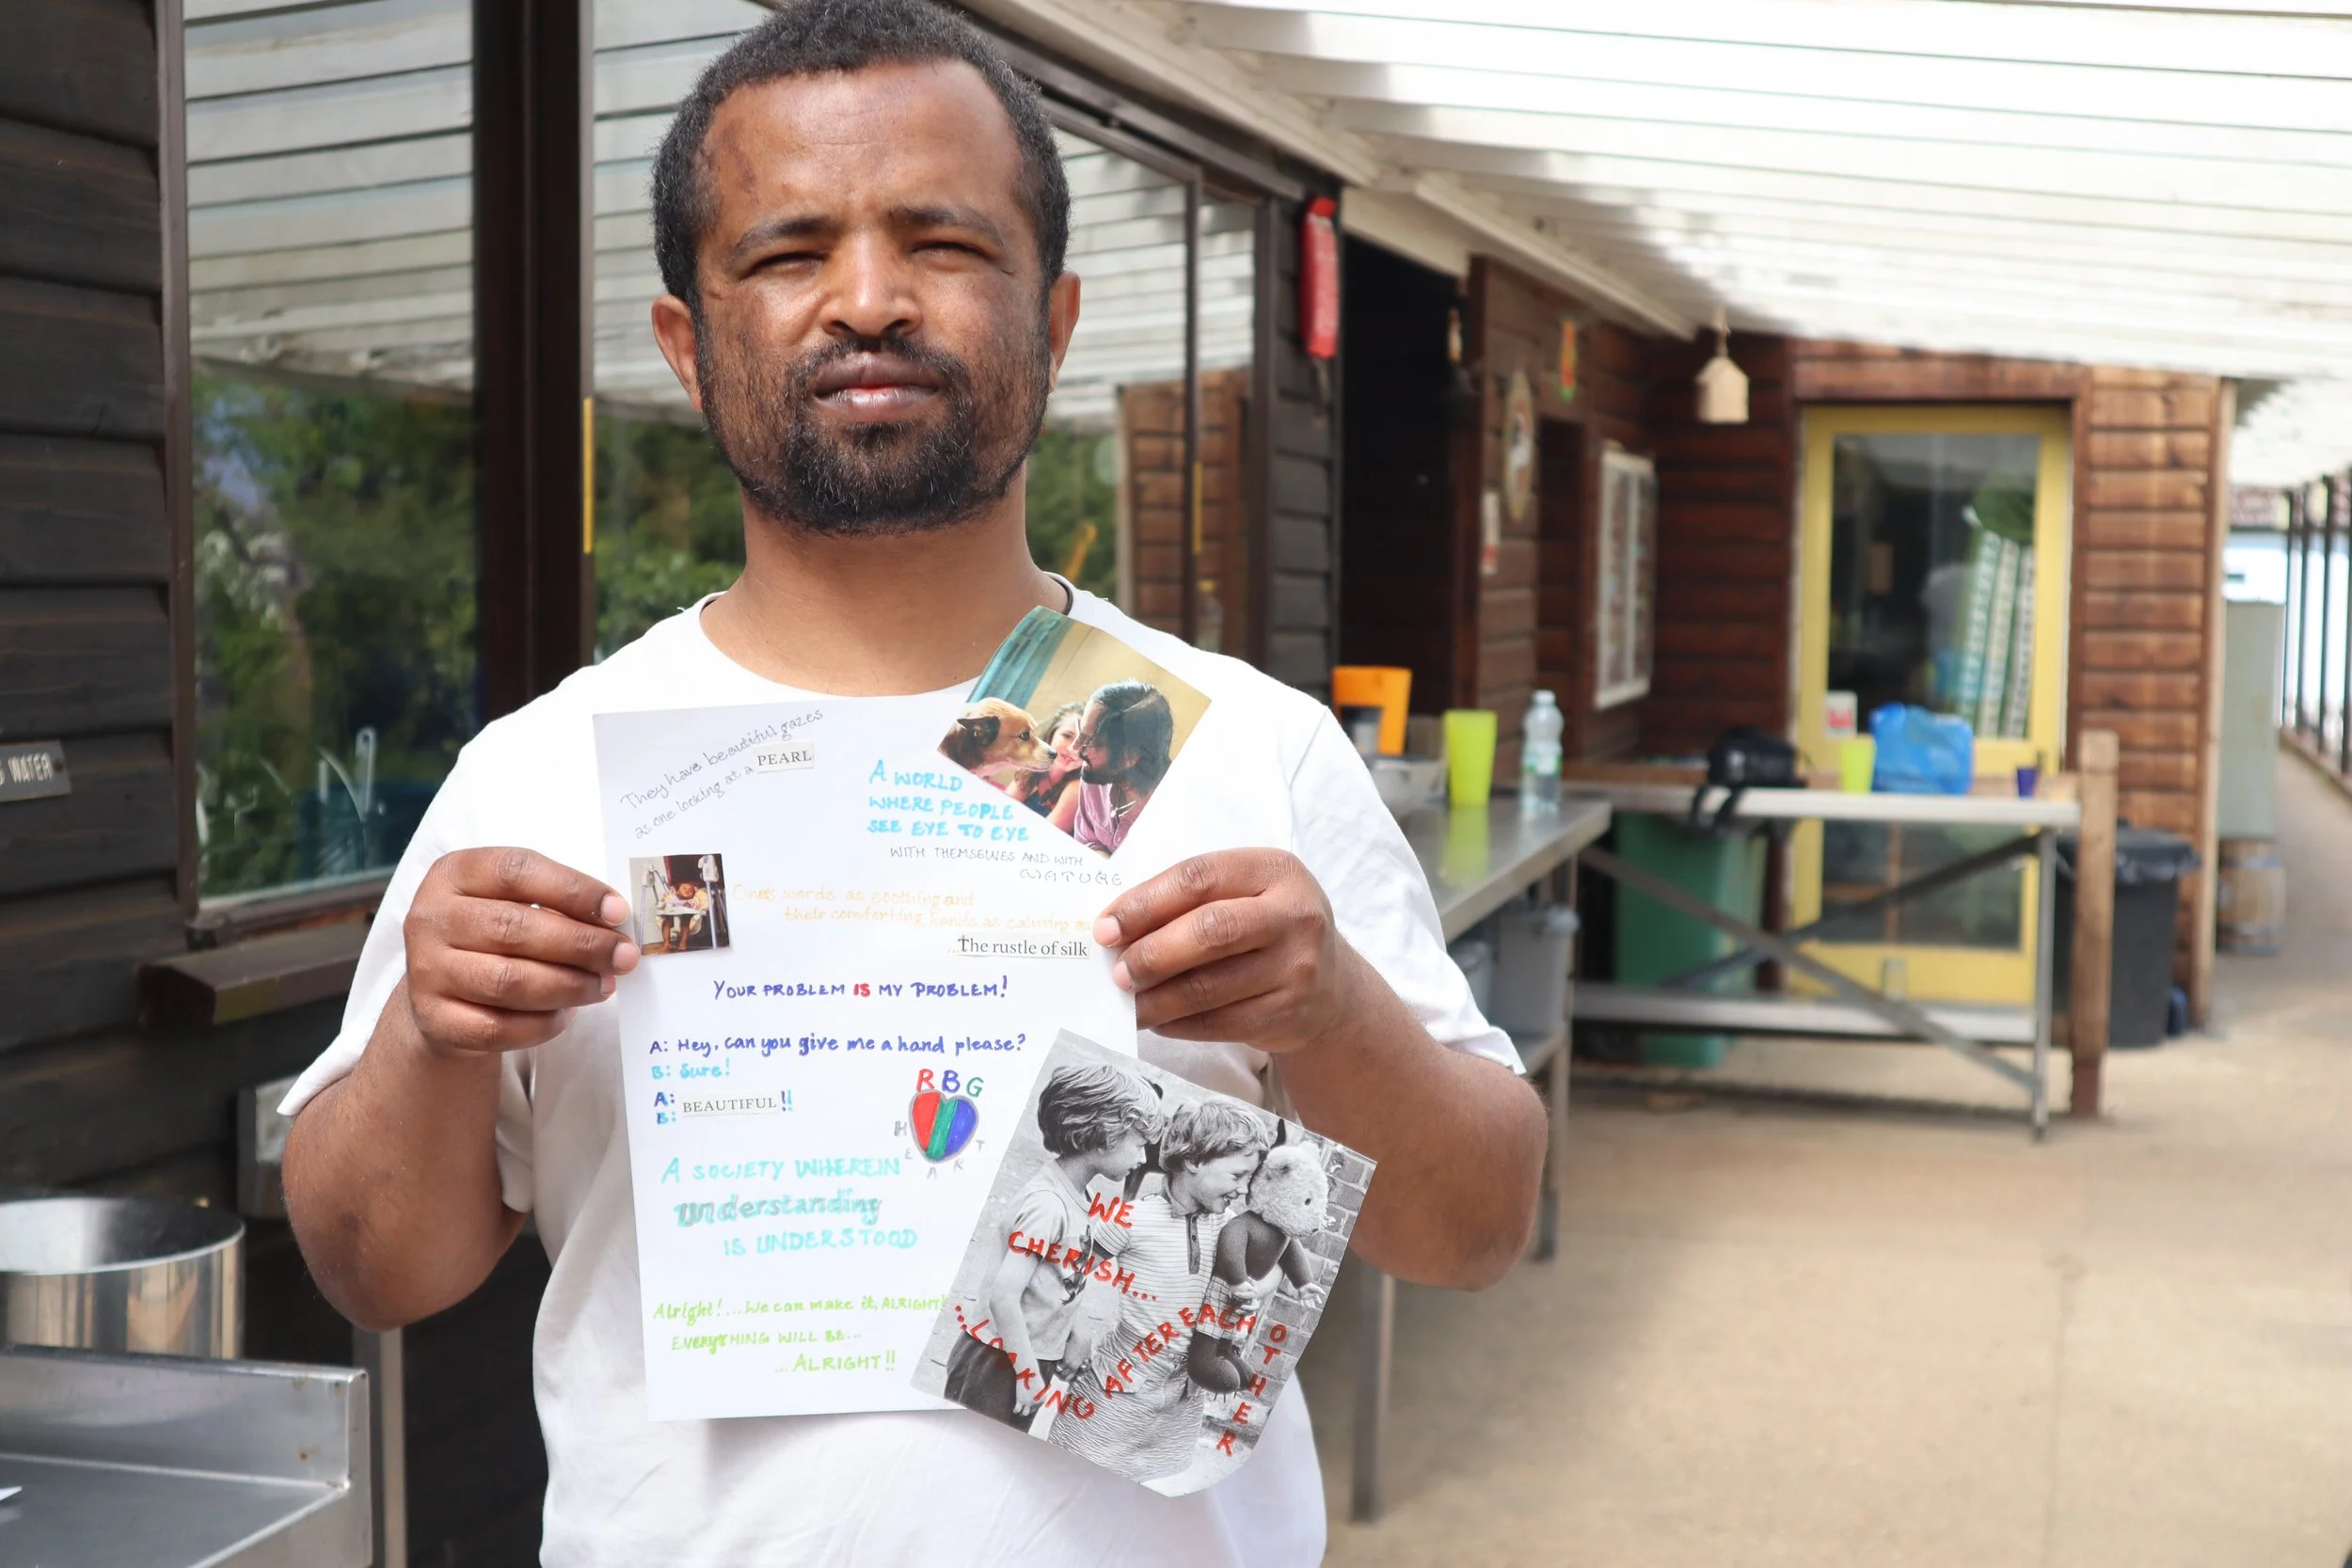 They have beautiful gazes
as one looking at a PEARL
A WORLD
WHERE PEOPLE
SEE EYE TO EYE
WITH THEMSELVES AND WITH
NATURE
One's words as soothing and
their comforting hands as calming as
...The rustle of silk
YOUR PROBLEM IS MY PROBLEM!
A: Hey, can you give me a hand please?
B: Sure!
A:
B: BEAUTIFUL!!
RBG
HEART
A SOCIETY WHEREIN
understanding
IS UNDERSTOOD
Alright!...We can make it, ALRIGHT!
EVERYTHING WILL BE...
...ALRIGHT!!
WE
CHERISH...
...LOOKING AFTER EACH OTHER
WATER